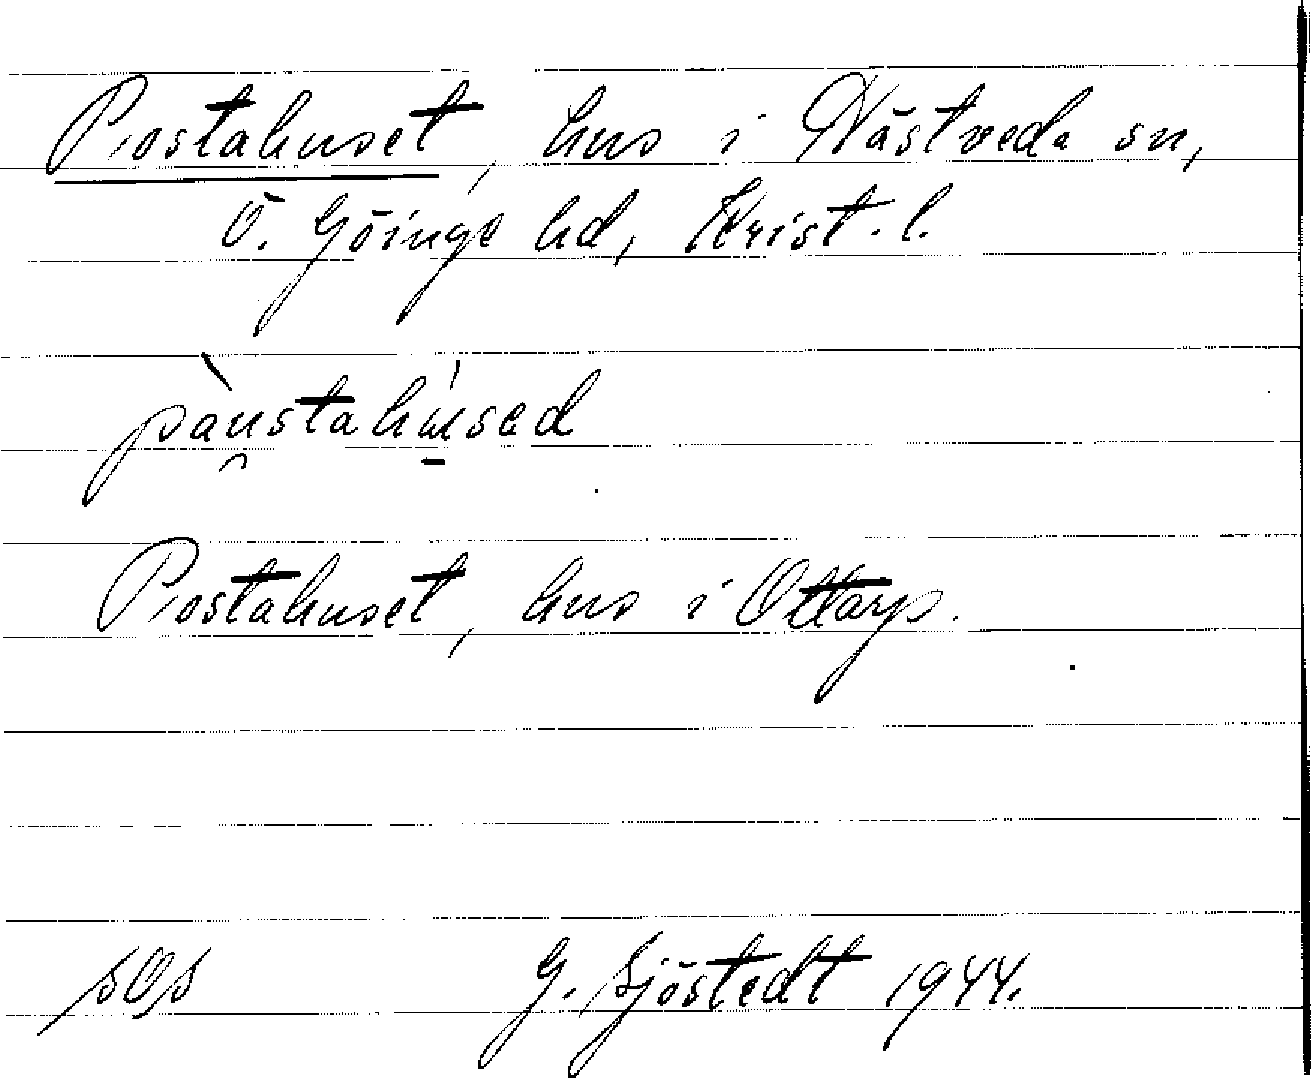 Postahuset, hus i Nästveda sn,
Ö. Göinge hd, Krist. l.
pàustahúsed
Postahuset, hus i Ottarp.
sOs G. Sjöstedt 1944.